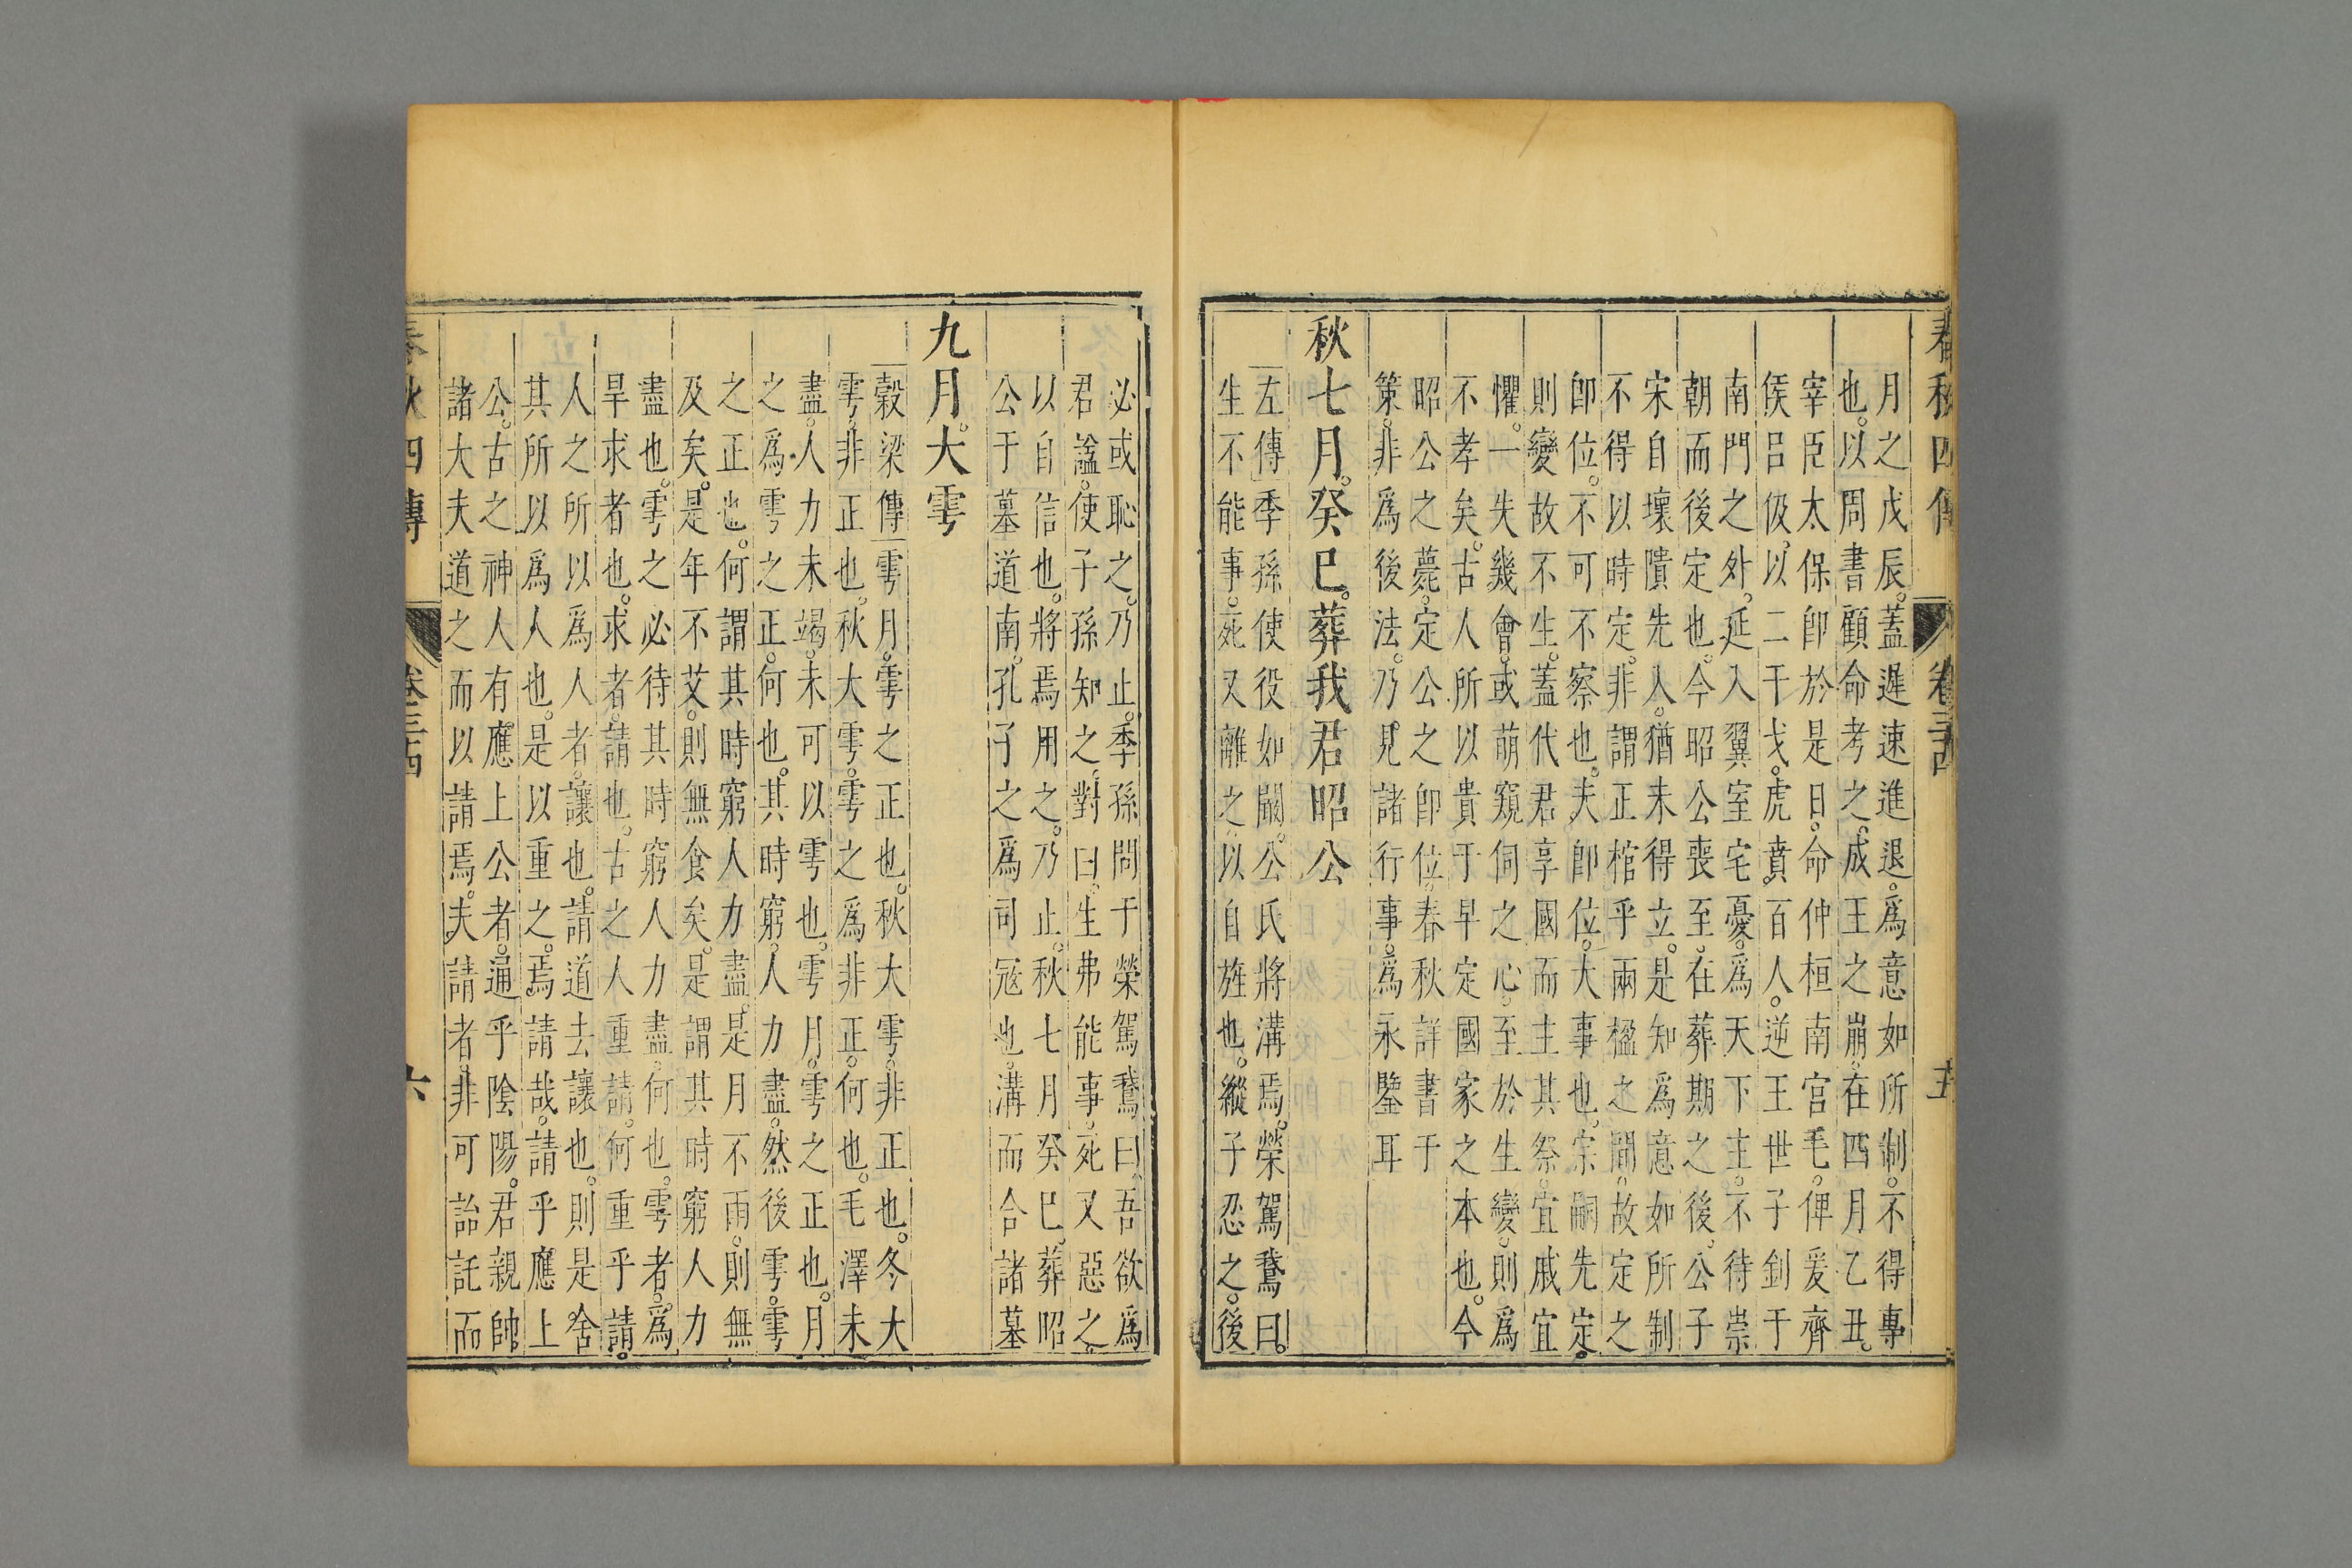 春秋四傳 卷三十四 五
月之戊辰。蓋遲速進退。爲意如所制。不得專
也。以周書顧命考之。成王之崩。在四月乙丑。
宰臣太保。卽於是日。命仲桓南宮毛。俾爰齊
侯呂伋。以二干戈。虎賁。百人。逆王世子釗于
南門之外。延入翼室宅憂。爲天下主。不待崇
朝而後定也。今昭公喪至。在葬期之後。公子
宋自壞隤先入。猶未得立。是知爲意如所制
不得以時定。非謂正棺乎兩楹之間。故定之
卽位。不可不察也。夫卽位。大事也。宗嗣先定。
則變故不生。蓋代君享國而主其祭。宜戚宜
懼。一失幾會。或萌窺伺之心。至於生變。則爲
不孝矣。古人所以貴于早定國家之本也。今
昭公之薨。定公之卽位。春秋詳書于
策。非爲後法。乃見諸行事。爲永鑒耳
秋七月。癸巳。葬我君昭公
左傳季孫使役如闞。公氏將溝焉。榮駕鵞曰。
生不能事。死又離之。以自旌也。縱子忍之。後
必或恥之。乃止。季孫問于榮駕鵞曰。吾欲爲
君謚。使子孫知之。對曰。生弗能事。死又惡之。
以自信也。將焉用之。乃止。秋七月癸巳。葬昭
公于墓道南。孔子之爲司寇也。溝而合諸墓
九月。大雩
穀梁傳雩月。雩之正也。秋大雩。非正也。冬大
雩。非正也。秋大雩。雩之爲非正。何也。毛澤未
盡。人力未竭。未可以雩也。雩月。雩之正也。月
之爲雩之正。何也。其時窮。人力盡。然後雩。雩
之正也。何謂其時窮人力盡。是月不雨。則無
及矣。是年不艾。則無食矣。是謂其時窮人力
盡也。雩之必待其時窮人力盡。何也。雩者。爲
旱求者也。求者。請也。古之人重請。何重乎請。
人之所以爲人者。讓也。請道去讓也。則是舍
其所以爲人也。是以重之。焉請哉。請乎應上
公。古之神人有應上公者。通乎陰陽。君親帥
諸大夫道之而以請焉。夫請者。非可詒託而
春秋四傳 卷三十四 六